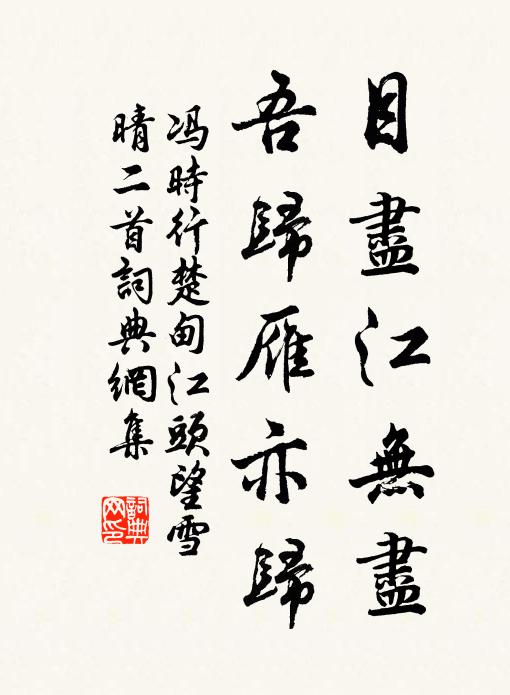 目盡江無盡
吾歸雁亦歸
冯時行楚甸江頭望雪
晴二首詞典網集
詞典
网印